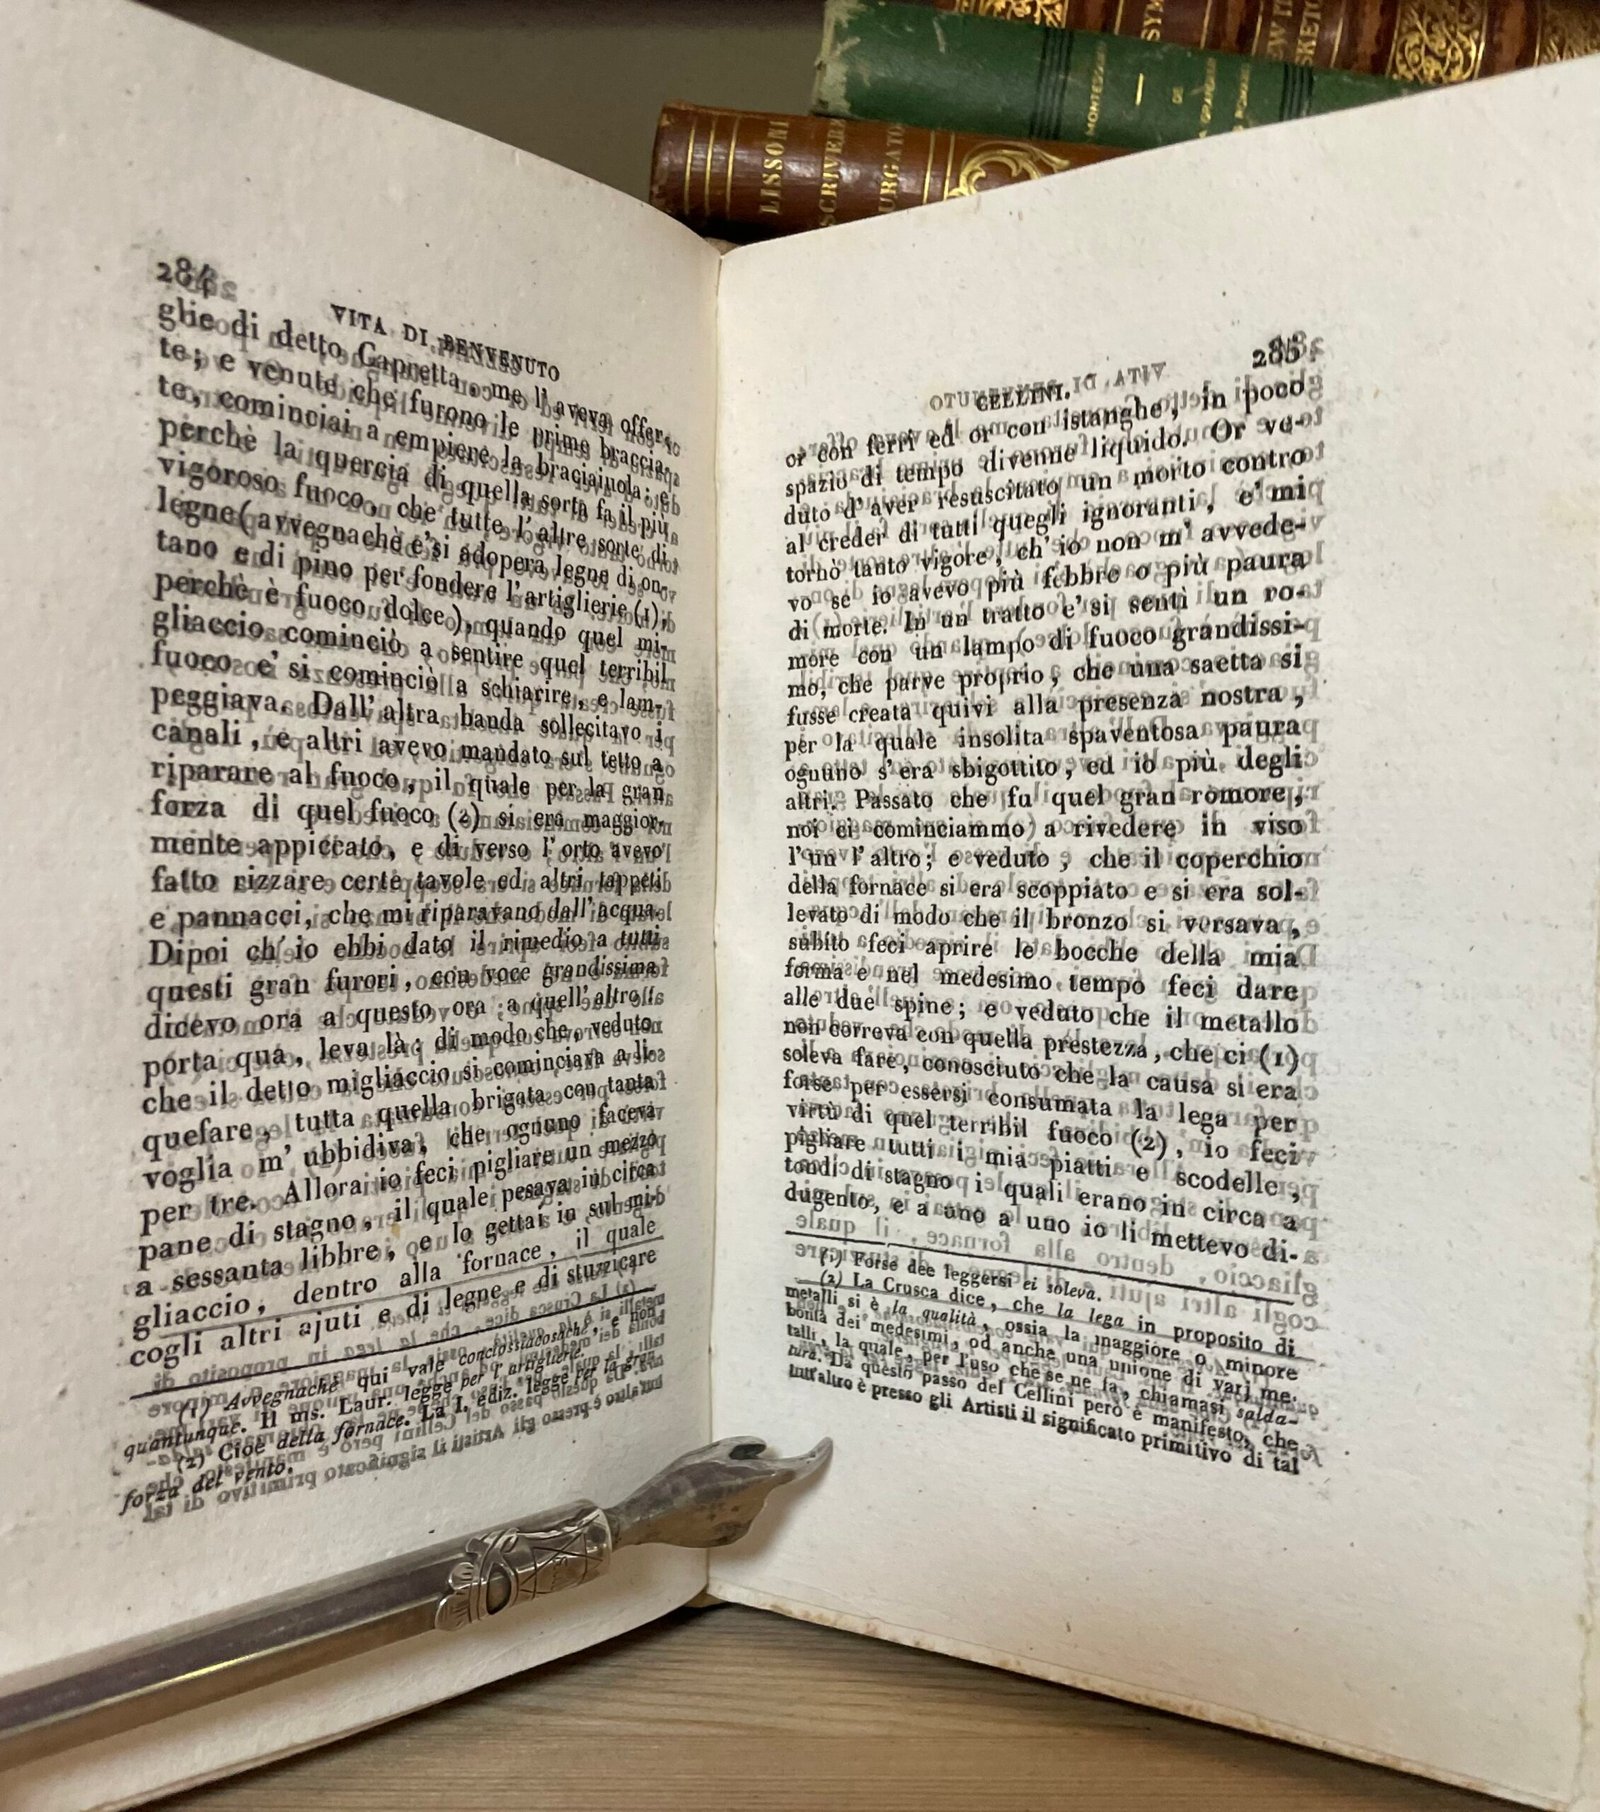 LISSONI
SCRIVERE
PURGATO
MONTESQUIEU
DE
LA GRANDEUR
SYM
NEW
SKETC
284
VITA DI BENVENUTO
glie di detto Capretta, me l'aveva offer-
te; e venute che furono le prime braccia-
te, cominciai a empiere la braciaiuola; e
perchè la quercia di quella sorta fa il più
vigoroso fuoco, che tutte l'altre sorte di
legne (avvegnachè e' si adopera legne di on-
tano e di pino per fondere l'artiglierie (1),
perchè è fuoco dolce), quando quel mi-
gliaccio cominciò a sentire quel terribil
fuoco e' si cominciò a schiarire, e lam-
peggiava. Dall' altra banda sollecitavo i
canali, e altri avevo mandato sul tetto a
riparare al fuoco, il quale per la gran
forza di quel fuoco (2) si era maggior-
mente appiccato, e di verso l'orto avevo
fatto rizzare certe tavole ed altri tappeti
e pannacci, che mi riparavano dall'acqua.
Dipoi ch' io ebbi dato il rimedio a tutti
questi gran furori, con voce grandissima
dicevo ora a questo ora a quell'altro:
porta quà, leva là: di modo che, veduto
che il detto migliaccio si cominciava a li-
quefare, tutta quella brigata con tanta
voglia m' ubbidiva, che ognuno faceva
per tre. Allora io feci pigliare un mezzo
pane di stagno, il quale pesava in circa
a sessanta libbre, e lo gettai in sul mi-
gliaccio, dentro alla fornace, il quale
cogli altri ajuti e di legne e di stuzzicare
(1) Avvegnachè qui vale conciossiacosachè, e non
quantunque. Il ms. Laur. legge per l'artiglierie.
(2) Cioè della fornace. La I. ediz. legge per la gran
forza del vento.
285
CELLINI.
or con ferri ed or con istanghe, in poco
spazio di tempo divenne liquido. Or ve-
duto d'aver resuscitato un morto contro
al creder di tutti quegli ignoranti, e' mi
tornò tanto vigore, ch' io non m' avvede-
vo se io avevo più febbre o più paura
di morte. In un tratto e' si sentì un ro-
more con un lampo di fuoco grandissi-
mo, che parve proprio, che una saetta si
fusse creata quivi alla presenza nostra,
per la quale insolita spaventosa paura
ognuno s'era sbigottito, ed io più degli
altri. Passato che fu quel gran romore,
noi ci cominciammo a rivedere in viso
l'un l'altro; e veduto, che il coperchio
della fornace si era scoppiato e si era sol-
levato di modo che il bronzo si versava,
subito feci aprire le bocche della mia
forma e nel medesimo tempo feci dare
alle due spine; e veduto che il metallo
non correva con quella prestezza, che ci (1)
soleva fare, conosciuto che la causa si era
forse per essersi consumata la lega per
virtù di quel terribil fuoco (2), io feci
pigliare tutti i mia piatti e scodelle,
tondi di stagno i quali erano in circa a
dugento, e a uno a uno io li mettevo di-
(1) Forse dee leggersi ei soleva.
(2) La Crusca dice, che la lega in proposito di
metalli si è la qualità, ossia la maggiore o minore
bontà dei medesimi, od anche una unione di varj me-
talli, la quale, per l'uso che se ne fa, chiamasi salda-
tura. Da questo passo del Cellini però è manifesto, che
tutt'altro è presso gli Artisti il significato primitivo di tal